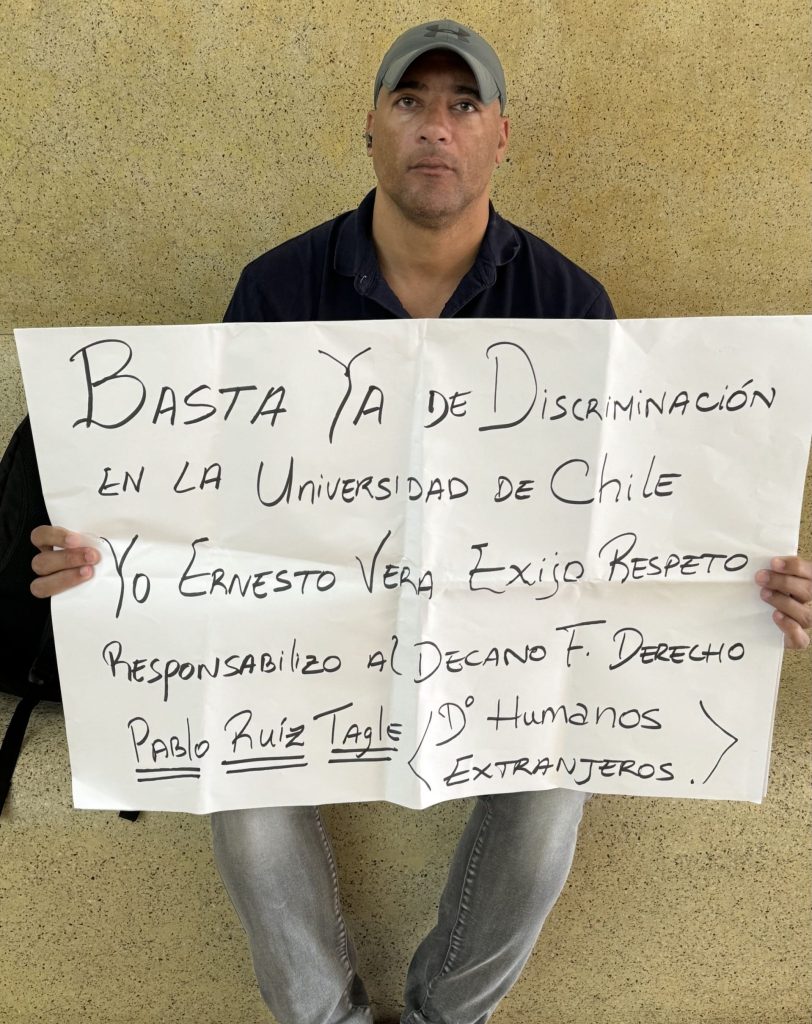 BASTA YA DE DISCRIMINACIÓN
EN LA UNIVERSIDAD DE CHILE
YO ERNESTO VERA EXIJO RESPETO
RESPONSABILIZO AL DECANO F. DERECHO
PABLO RUÍZ TAGLE
<D° HUMANOS
EXTRANJEROS.>